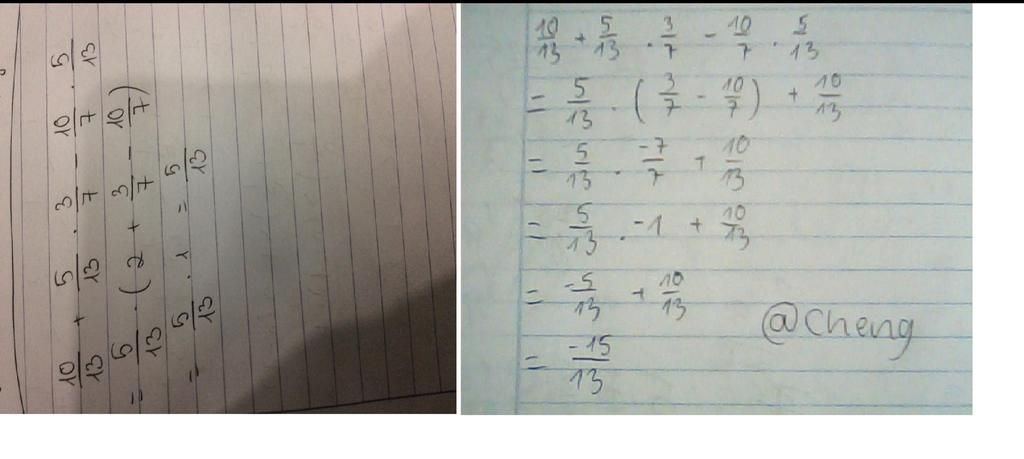 10/13 + 5/13 . 3/7 - 10/7 . 5/13
= 5/13 . (2 + 3/7 - 10/7)
= 5/13 . 1 = 5/13
10/13 + 5/13 . 3/7 - 10/7 . 5/13
= 5/13 . (3/7 - 10/7) + 10/13
= 5/13 . -7/7 + 10/13
= 5/13 . -1 + 10/13
= -5/13 + 10/13
= -15/13
@Cheng